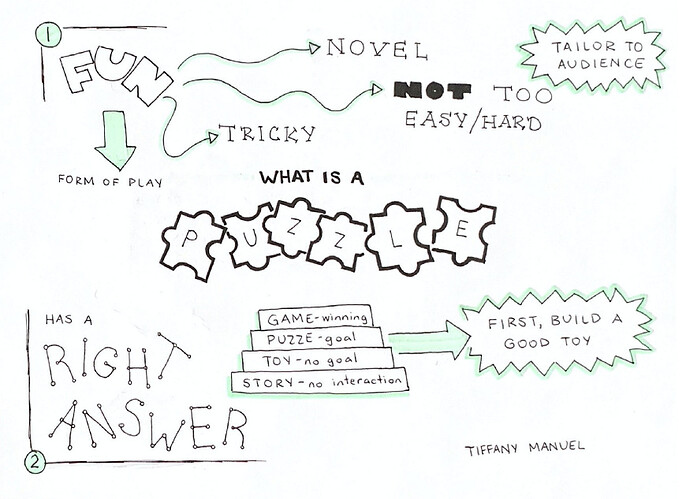 1
FUN
NOVEL
NOT TOO
EASY/HARD
TRICKY
TAILOR TO
AUDIENCE
FORM OF PLAY
WHAT IS A
PUZZLE
HAS A
RIGHT
ANSWER
2
GAME-winning
PUZZE-goal
TOY-no goal
STORY-no interaction
FIRST, BUILD A
GOOD TOY
TIFFANY MANUEL